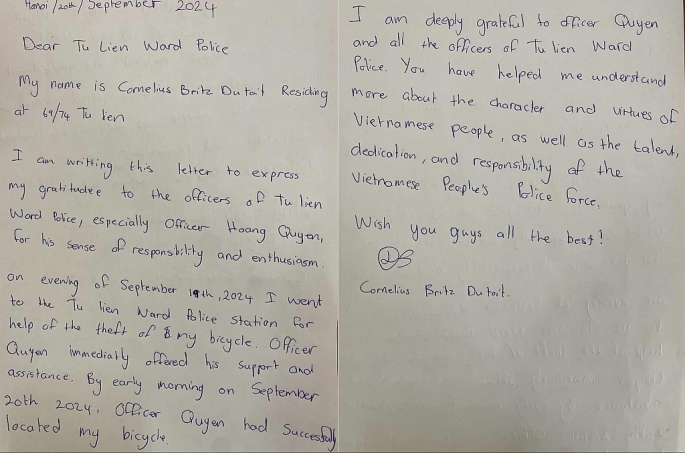 Hanoi /20th/ September 2024
Dear Tu Lien Ward Police
My name is Cornelius Britz Du toit Residing
at 69/74 Tu lien
I am writting this letter to express
my gratitudee to the officers of Tu lien
Ward Police, especially Officer Hoang Quyen,
for his sense of responsibility and enthusiasm.
on evening of September 19th, 2024 I went
to the Tu lien Ward Police Station for
help of the theft of my bicycle. Officer
Quyen immediatly offered his support and
assistance. By early morning on September
20th 2024, Officer Quyen had Successfully
located my bicycle.
I am deeply grateful to officer Quyen
and all the officers of Tu lien Ward
Police. You have helped me understand
more about the character and virtues of
Vietnamese people, as well as the talent,
dedication, and responsibility of the
Vietnamese People's Police force.
Wish you guys all the best!
Cornelius Britz Du toit.